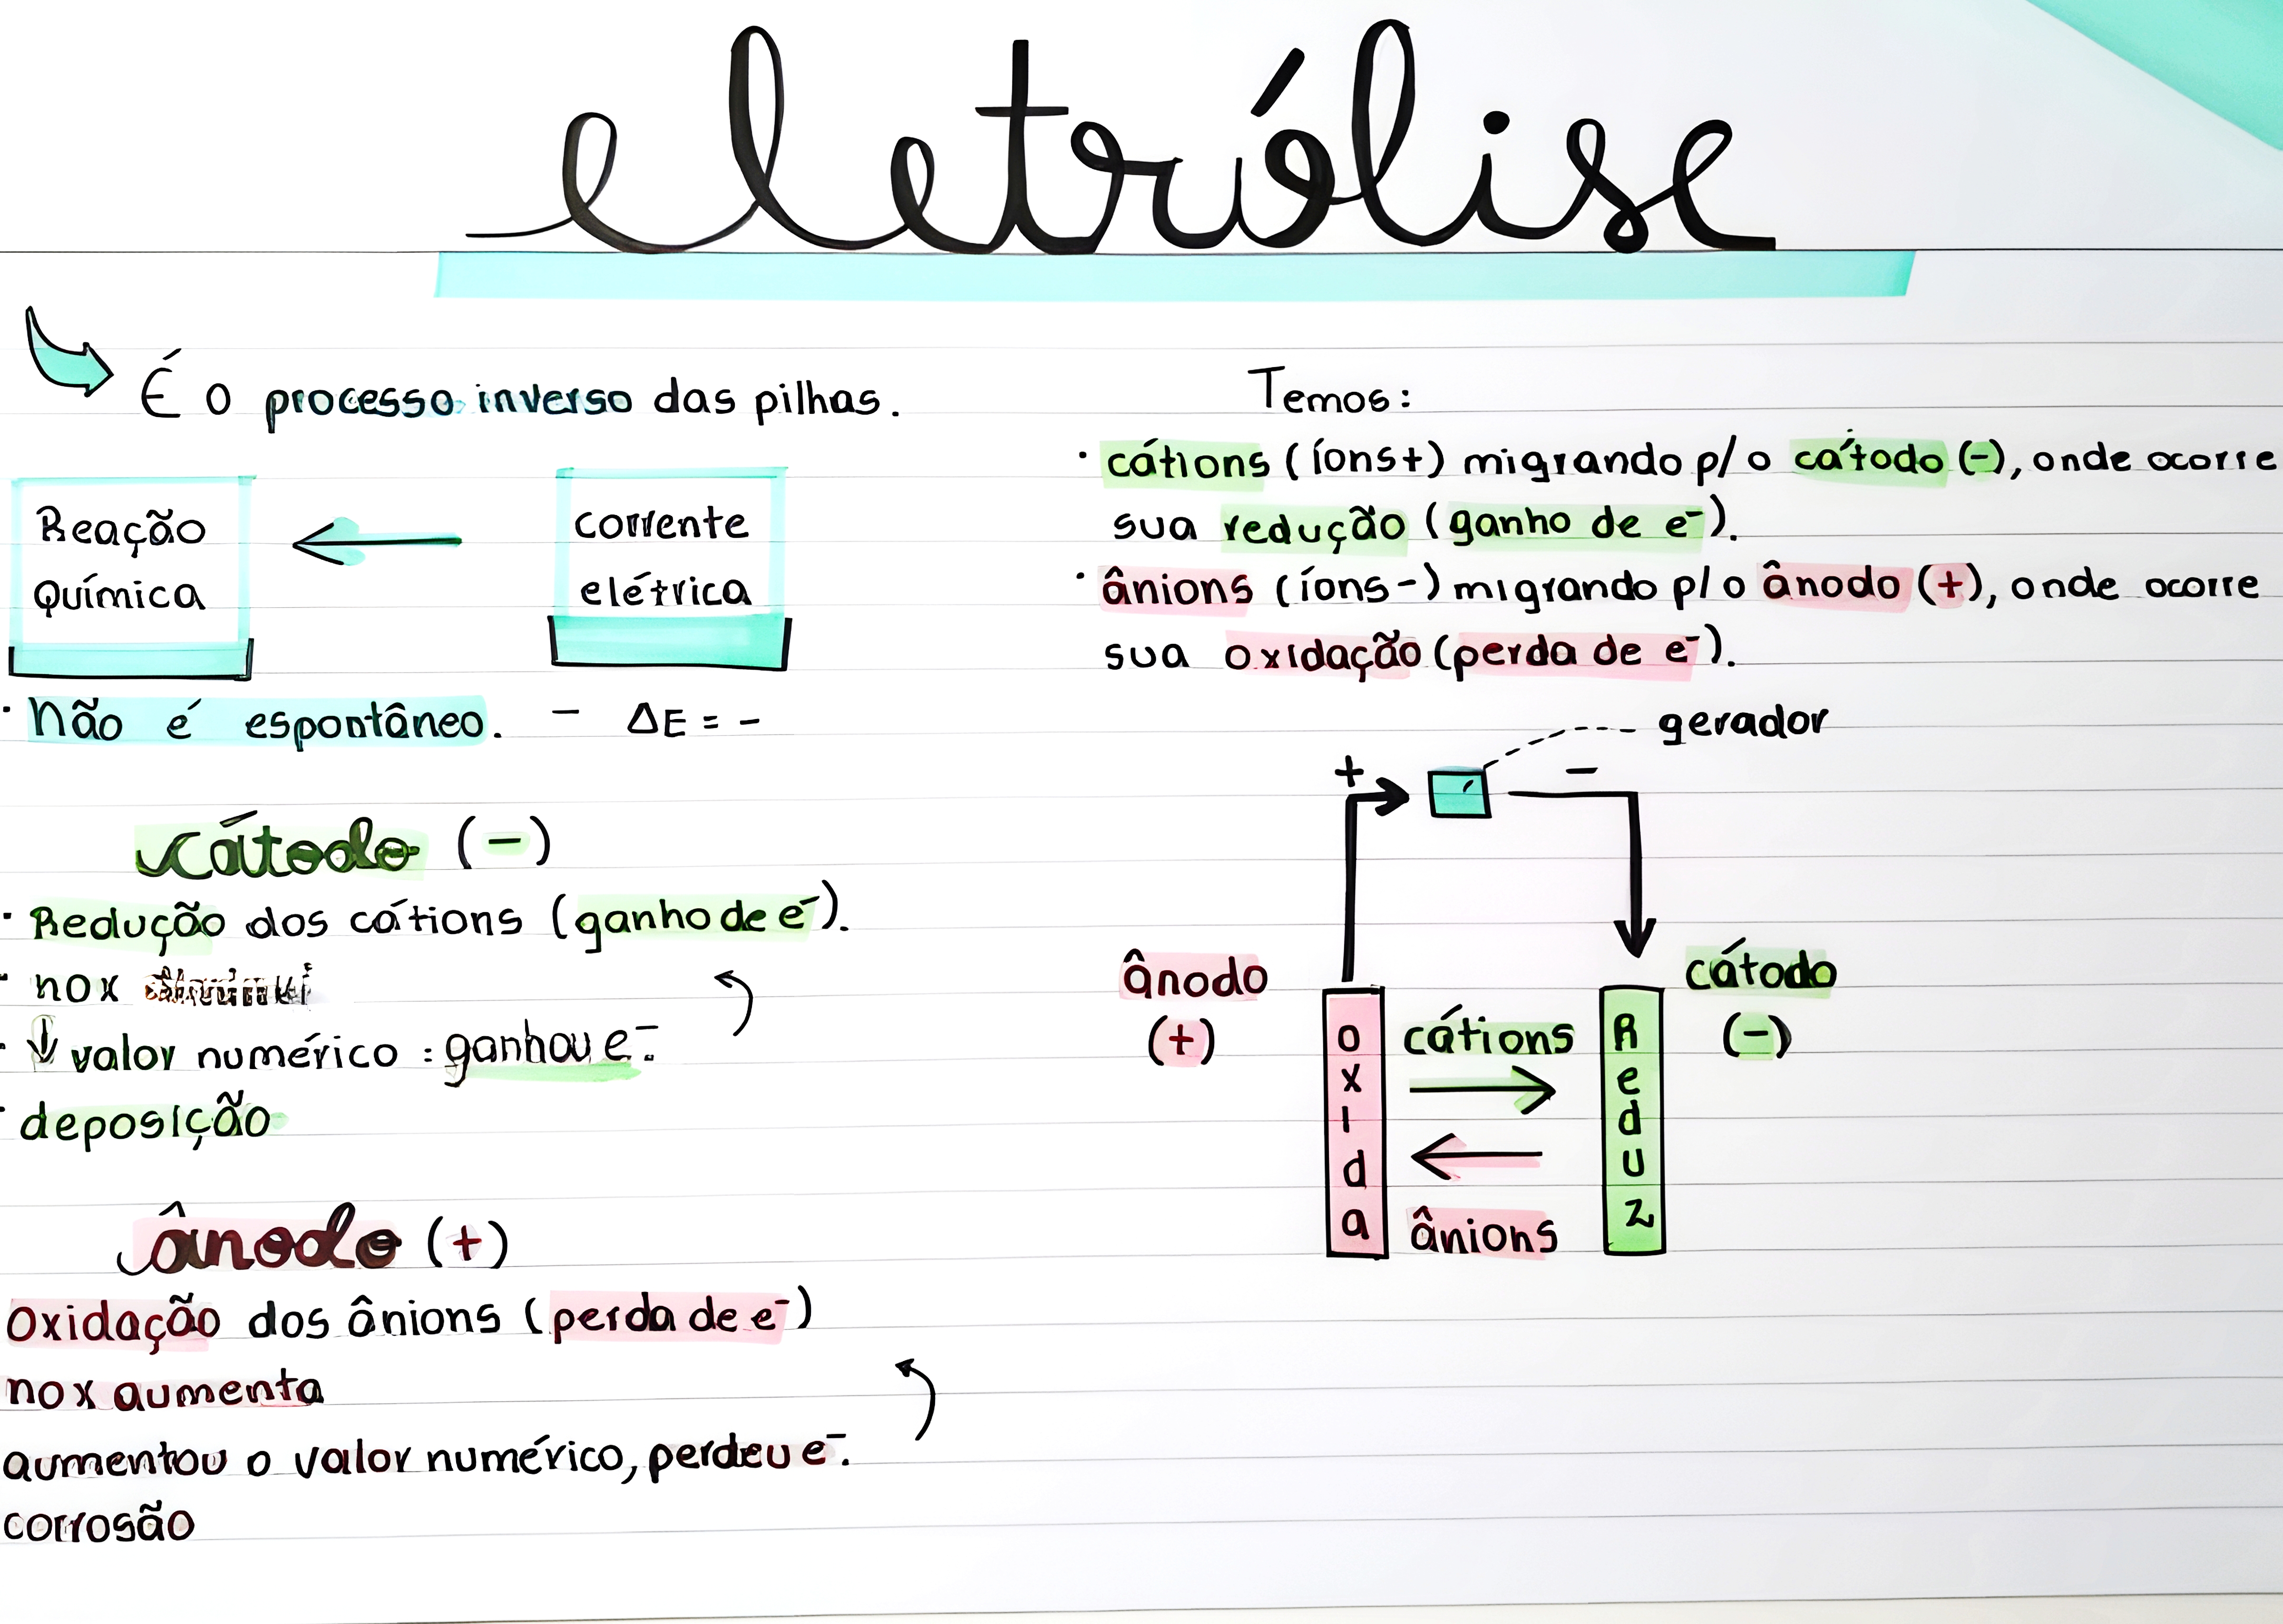 eletrólise
É o processo inverso das pilhas.
Reação
Química
corrente
elétrica
· Não é espontâneo. - ΔE = -
cátodo (-)
· Redução dos cátions (ganho de e⁻).
· nox
· ↓ valor numérico : ganhou e⁻.
· deposição
ânodo (+)
Oxidação dos ânions (perda de e⁻)
nox aumenta
aumentou o valor numérico, perdeu e⁻.
corrosão
Temos:
· cátions (íons+) migrando p/ o cátodo (-), onde ocorre
sua redução (ganho de e⁻).
· ânions (íons-) migrando p/ o ânodo (+), onde ocorre
sua oxidação (perda de e⁻).
gerador
+
-
ânodo
(+)
oxida
cátions
ânions
Reduz
cátodo
(-)